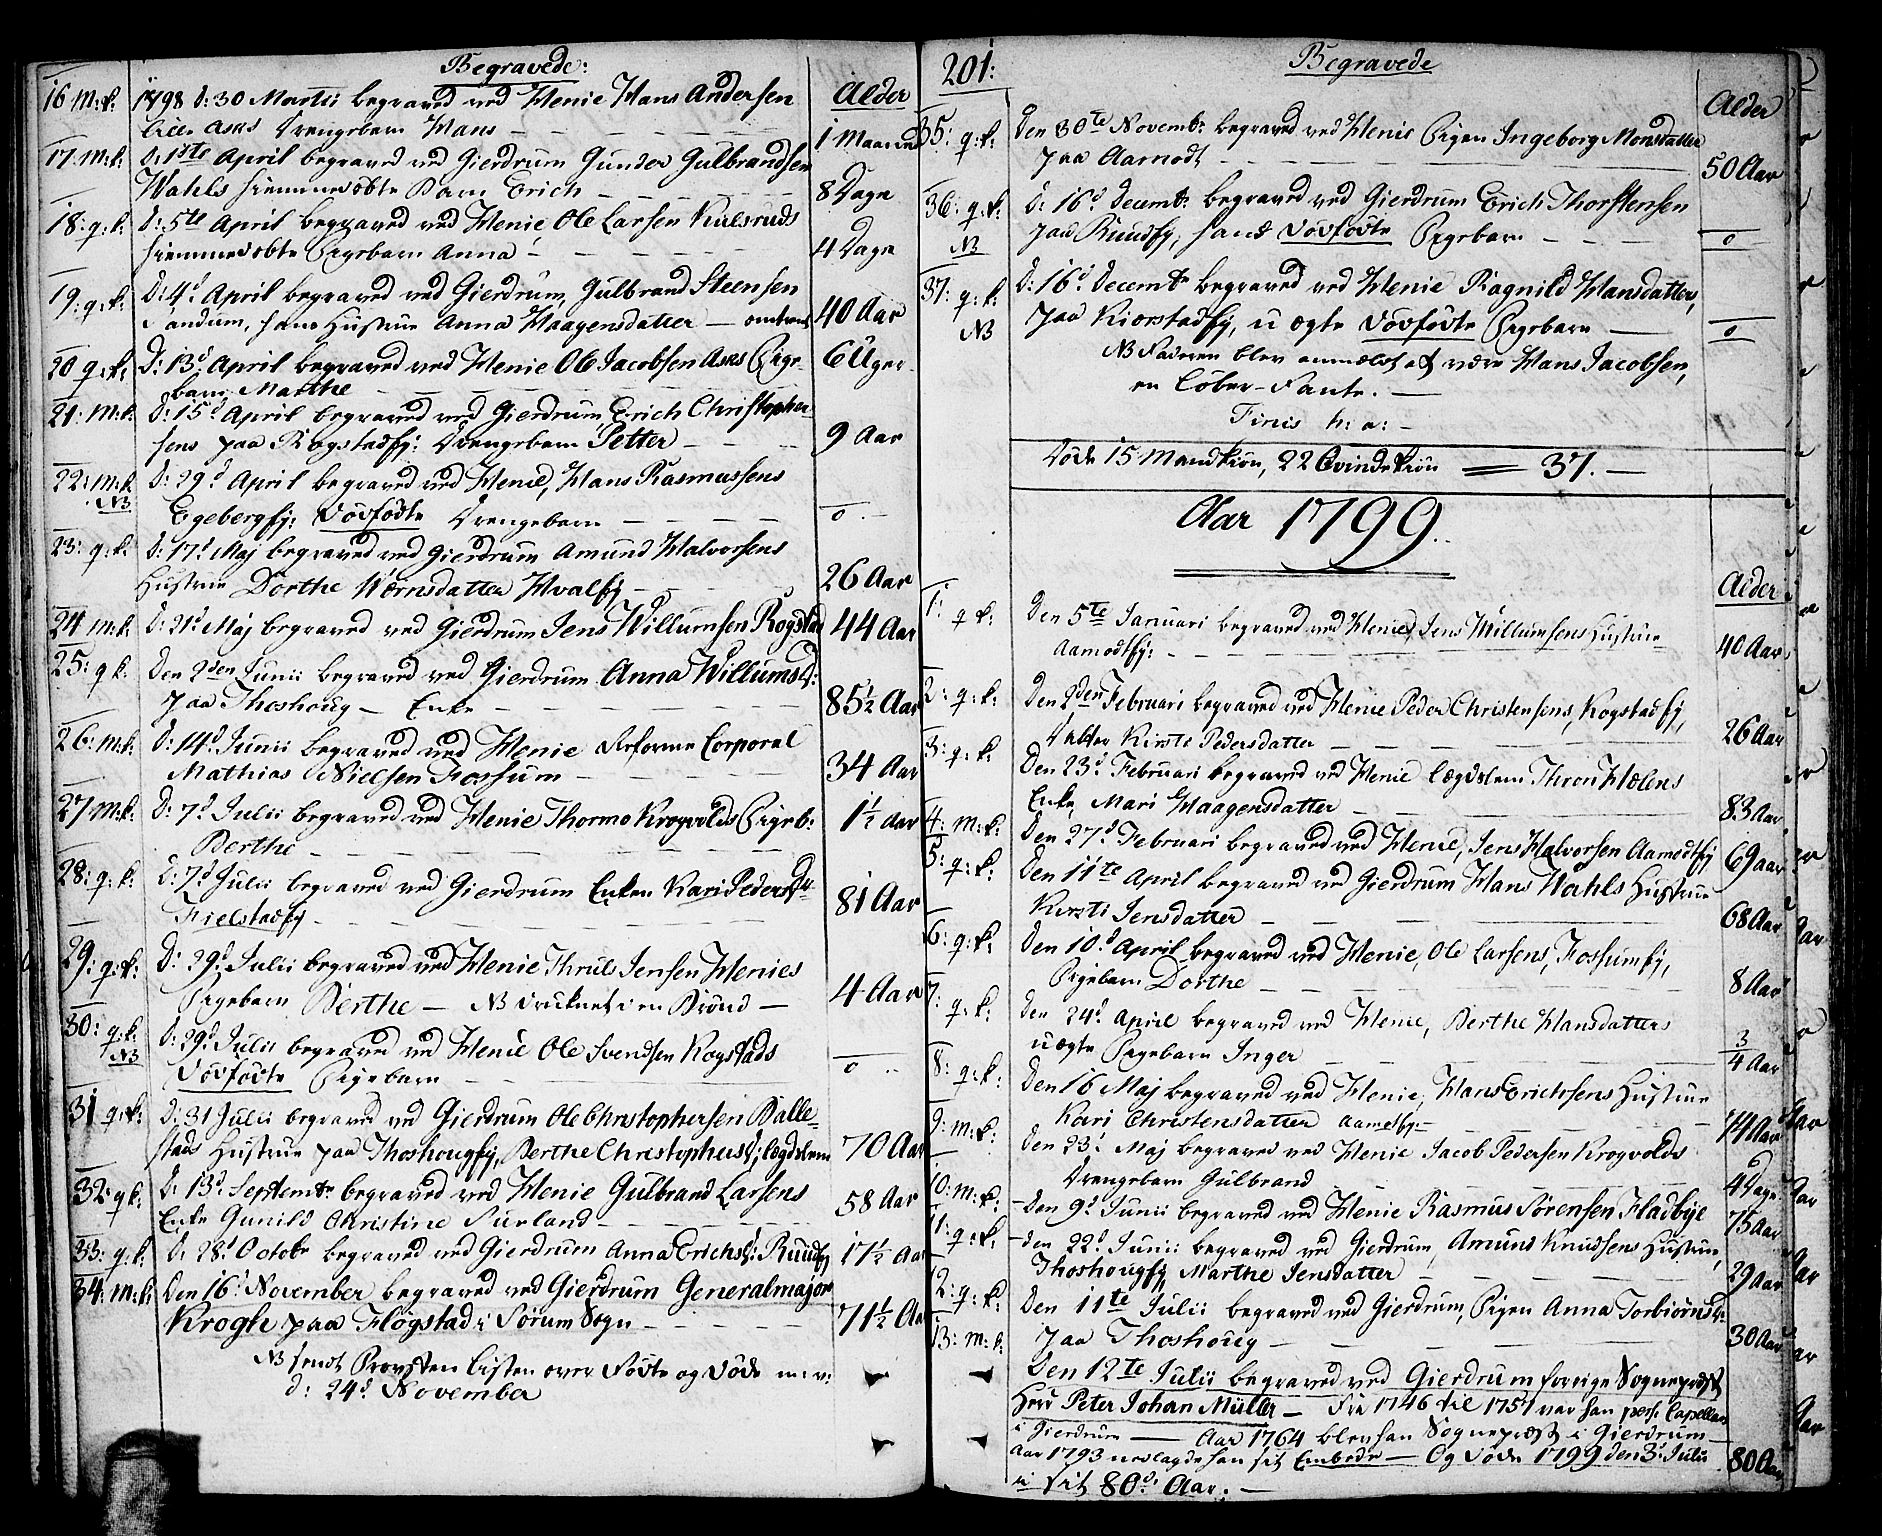 Begravede:
Alder
16 M:k: 1798 d: 30 Martii begraved ved Henie Hans Andersen
Asks Drengebarn Hans — 1 Maaned
17. M:k: d: 1ste April begraved ved Gierdrum Gunder Gulbrandsen
Wahls hiemmedøbte Barn Erich — 8 Dage
18: q:k: d: 5te April begraved ved Henie Ole Larsen Kulsruds
hiemmedøbte Pigebarn Anna — 4 Dage
19: q:k: d: 4d April begraved ved Gierdrum, Gulbrand Steensen
Sandum, hans Hustrue Anna Haagensdatter — omtrent 40 Aar
20 q:k: d: 13d April begraved ved Henie Ole Jacobsen Asks Pige-
barn Marthe — 6 Uger
21: M:k: d: 15d April begraved ved Gierdrum Erich Christopher-
sens paa Rogstadfj: Drengebarn Petter — 9 Aar
22: M:k. d: 29d April begraved ved Henie, Hans Rasmussens
NB Egebergfj: Dødfødte Drengebarn — 0 —
23: q:k: d: 17d Maj begraved ved Gierdrum Amund Halvorsens
Hustrue Dorthe Wærnsdatter Hvalfj — 26 Aar
24 M:k: d: 21d Maj begraved ved Gierdrum Jens Willumsen Rogstad 44 Aar
25: q k: den 2den Junii begraved ved Gierdrum Anna Willumsd:
paa Thoshoug — Enke — 85½ Aar
26: m:k. d: 14d Junii begraved ved Henie Reforme Corporal
Mathias Nielsen Fossum — 34 Aar
27 M:k: d: 7d Julii begraved ved Henie Thormo Krogvolds Pigeb:
Berthe — 1½ aar
28: q:k: d: 7d Julii begraved ved Gierdrum Enken Kari Pedersdr
Fielstadfj — 81 Aar
29: q:k: d: 29d Julii begraved ved Henie Thruls Jensen Henies
Pigebarn Berthe — NB druknet i en Brønd — 4 Aar
30: q:k: d: 29d Julii begraved ved Henie Ole Svendsen Rogstads
NB Dødfødte Pigebarn — 0 —
31 q:k: d: 31 Julii begraved ved Gierdrum Ole Christophersen Balle-
stads Hustrue paa Thoshougfj, Berthe Christophersd; lægdslem 70 Aar
32: q k: d: 13d Septembr begraved ved Henie Gulbrand Larsens
Enke Gunild Christine Furland — 58 Aar
33: q:k: d. 28d Octobr begraved ved Gierdrum Anna Erichsd: Ruudfj 17½ Aar
34: M:k: Den 16d November begraved ved Gierdrum Generalmajor
Krogh paa Flogstad i Sørum Sogn — 71½ Aar
NB sendt Provsten Listen over Fødte og Døde m: v:
d: 24d November
201:
Begravede
Alder
35: q:k: Den 30te Novembr begraved ved Henie Pigen Ingeborg Monsdatter
paa Aamodt — 50 Aar
36: q:k: d: 16d Decembr begraved ved Gierdrum Erich Thorstensen
NB paa Ruudfj, hans Dødfødte Pigebarn — 0
37: q:k: d: 16d Decembr begraved ved Henie Ragnild Hansdatter,
NB paa Kiorstadfj, u ægte Dødfødte Pigebarn — 0
NB Faderen blev anmældt at være Hans Jacobsen,
en Løber-Fante. —
Finis h: a: —
Døde 15 Mandkiøn, 22 Qvindekiøn = 37. —
Aar 1799.
Alder
1: q k: Den 5te Januari begraved ved Henie, Jens Willumsens Hustrue
Aamodtfj: — 40 Aar
2: q:k: Den 2den Februari begraved ved Henie Peder Christensens, Rogstadfj,
datter Kirste Pedersdatter — 26 Aar
3: q:k: Den 23d Februari begraved ved Henie lægdslem Thron Holens
Enke, Mari Haagensdatter — 83 Aar
4: m:k: Den 27d Februari begraved ved Henie, Jens Halvorsen Aamodtfj 69 aar
5: q:k: Den 11te April begraved ved Gierdrum Hans Wahls Hustrue
Kirsti Jensdatter — 68 Aar
6: q:k: Den 10d April begraved ved Henie, Ole Larsens, Fossumfj,
Pigebarn Dorthe — 8 Aar
7: q:k: den 24d April begraved ved Henie, Berthe Hansdatters
uægte Pigebarn Inger — 3/4 Aar
8: q:k: Den 16 Maj begraved ved Henie, Hans Erichsens Hustrue
Kari Christensdatter Aamotfj — 74 Aar
9: M:k: Den 23d Maj begraved ved Henie Jacob Pedersen Krogvolds
Drengebarn Gulbrand — 4 Dage
10: M:k: — Den 9d Junii begraved ved Henie Rasmus Sørensen Fladbye 75 Aar
11: q:k: — den 22d Junii begraved ved Gierdrum, Amund Knudsens Hustrue,
Thoshougfj, Marthe Jensdatter — 29 Aar
12: q:k: Den 11te Julii begraved ved Gierdrum, Pigen Anna Torbiørnsdr
paa Thoshoug — 30 Aar
13: m:k: Den 12te Julii begraved ved Gierdrum forrige Sognepræst
Herr Peter Johan Müller — Fra 1746 til 1757 var han pers: Capellan
i Gierdrum — Aar 1764 blev han Sognepræst i Gierdrum —
Aar 1793 nedlagde han sit Embede — Og døde 1799 den 3d Julii
i sit 80d Aar. — 80 Aar